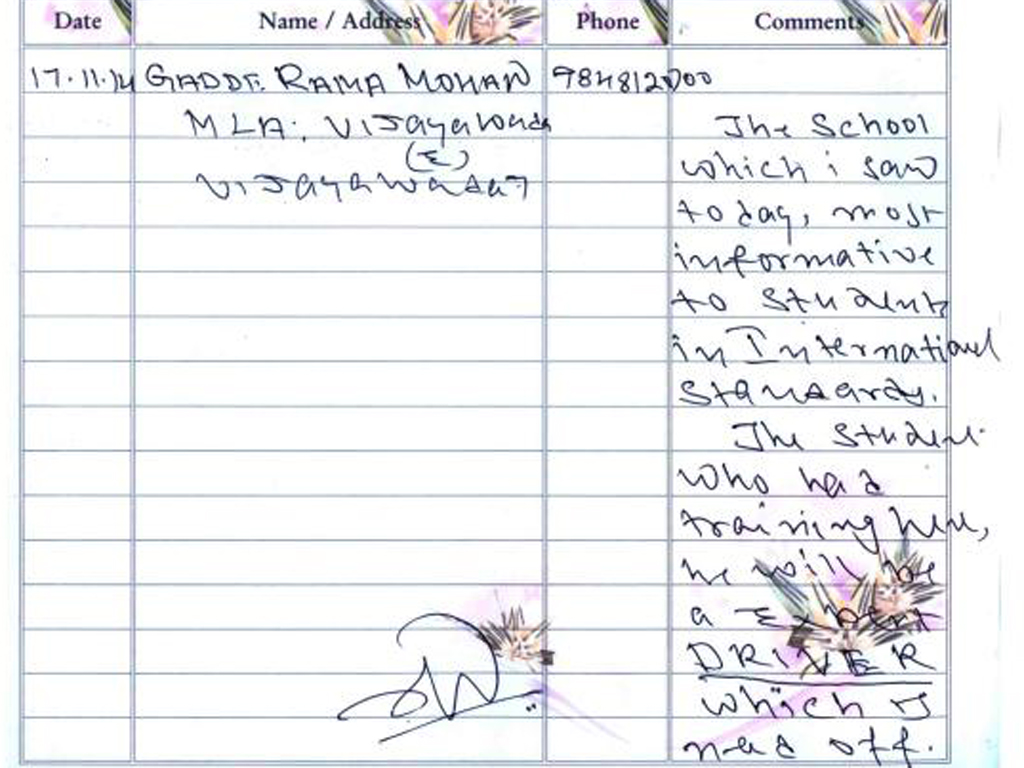 Date Name / Address Phone Comments
17.11.14 GADDE. RAMA MOHAN 9848120000
MLA. Vijayawada
(E)
Vijayawada-7
The School
which i saw
today, most
informative
to students
in International
standards.
The student
who had
training here,
he will be
a Expert
DRIVER
which is
need off.